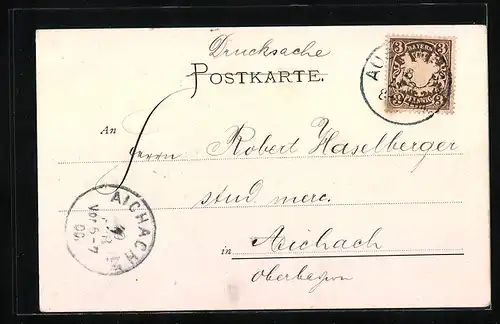 Drucksache
POSTKARTE.
3 BAYERN 3
3 PFENNIG 3
AU
8
An
Herrn Robert Haselberger
stud. merc.
in Aichach
Oberbayern
AICHACH
Vor 6-7
00.